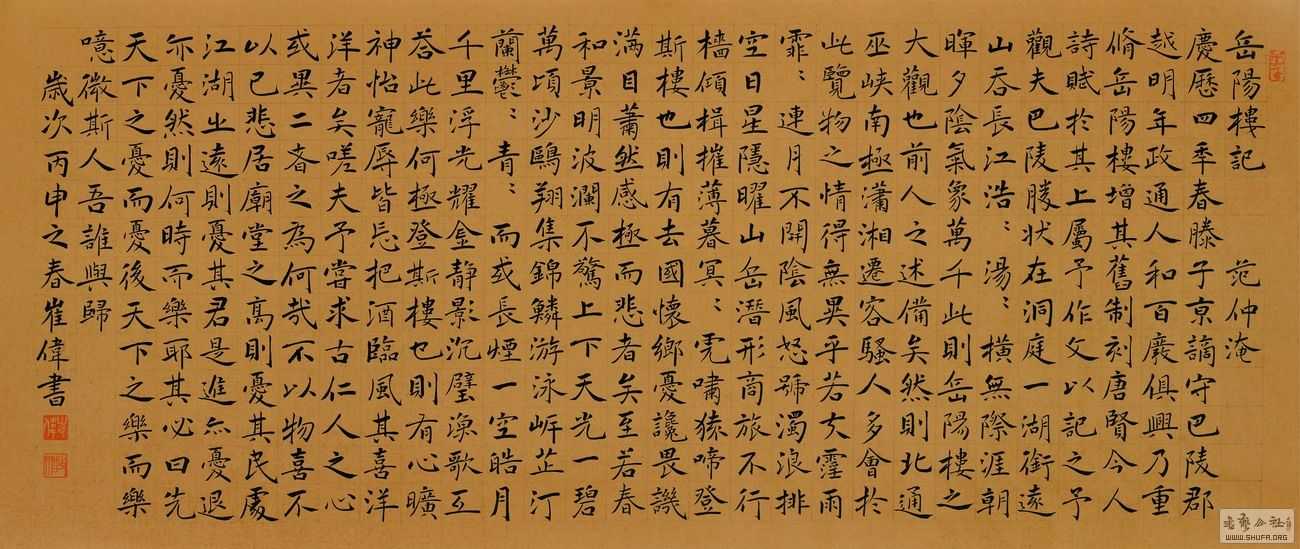 岳陽樓記 范仲淹
慶歷四秊春滕子京謫守巴陵郡
越明年政通人和百廢俱興乃重
脩岳陽樓增其舊制刻唐賢今人
詩賦於其上屬予作文以記之予
觀夫巴陵勝狀在洞庭一湖銜遠
山吞長江浩〻湯〻橫無際涯朝
暉夕陰氣象萬千此則岳陽樓之
大觀也前人之述備矣然則北通
巫峽南極瀟湘遷客騷人多會於
此覽物之情得無異乎若夫霪雨
霏〻連月不開陰風怒號濁浪排
空日星隱曜山岳潛形商旅不行
檣傾楫摧薄暮冥〻虎嘯猿啼登
斯樓也則有去國懷鄉憂讒畏譏
滿目蕭然感極而悲者矣至若春
和景明波瀾不驚上下天光一碧
萬頃沙鷗翔集錦鱗游泳岸芷汀
蘭鬱〻青〻而或長煙一空皓月
千里浮光耀金靜影沉璧漁歌互
荅此樂何極登斯樓也則有心曠
神怡寵辱皆忘把酒臨風其喜洋
洋者矣嗟夫予嘗求古仁人之心
或異二者之為何哉不以物喜不
以己悲居廟堂之高則憂其民處
江湖之遠則憂其君是進亦憂退
亦憂然則何時而樂耶其必曰先
天下之憂而憂後天下之樂而樂
噫微斯人吾誰與歸
歲次丙申之春崔偉書
WWW.SHUFA.ORG